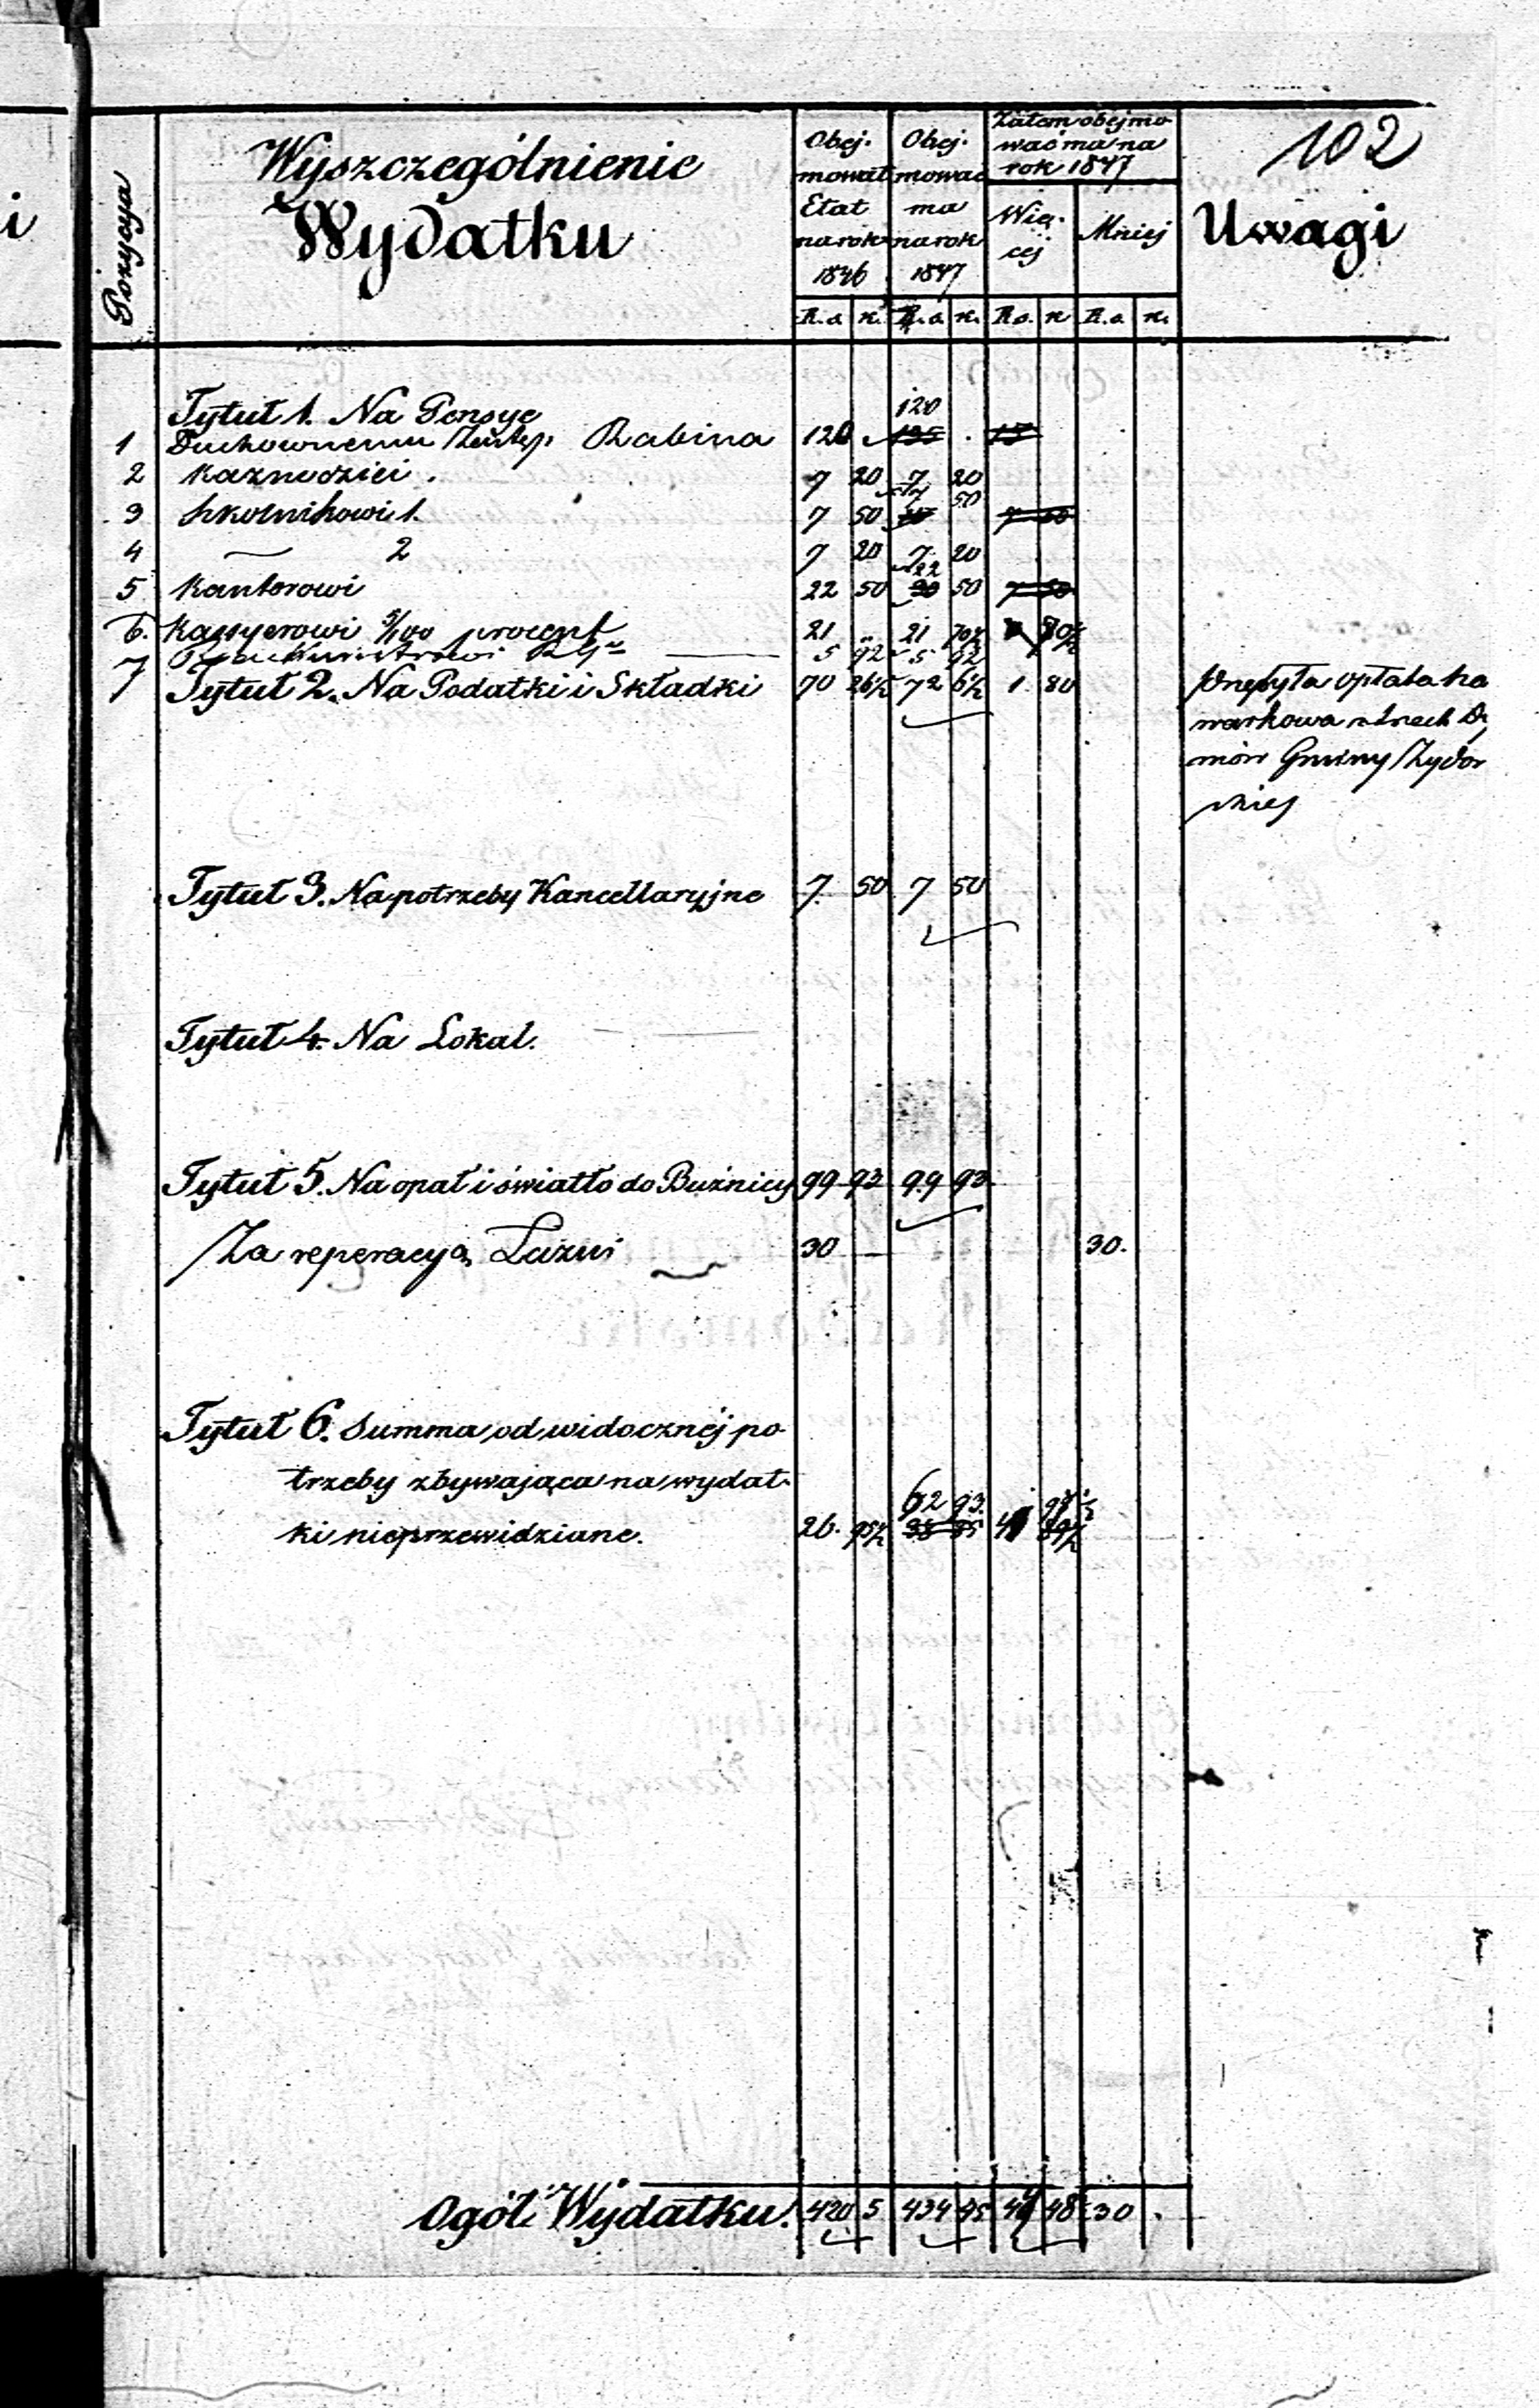 102
Pozycya
Wyszczególnienie
Wydatku
Obej-
mował
Etat
na rok
1846
Obej-
mować
ma
na rok
1847
Zatem obejmo
wać ma na
rok 1847
Wię-
cej
Mniej
Uwagi
R.s. k. R.s. k. R.s. k R.s. k.
Tytuł 1. Na Pensye
120
1 Duchownemu Zastęp. Rabina 120 135 15
2 Kaznodziei 7 20 7 20
7 50
3 Szkolnikowi 1. 7 50 7 50
4 — 2 7 20 7 20
22
5 Kantorowi 22 50 30 50 7 50
6. Kassyerowi 5/100 procent 21 21 70½ 70½
7 5 92 5 92
Tytuł 2. Na Podatki i Składki 70 26½ 72 6½ 1 80
Przybyła opłata ko
markowa z trzech Do
mów Gminy Żydow
skiej
Tytuł 3. Na potrzeby Kancellaryjne 7. 50 7 50
Tytuł 4. Na Lokal.
Tytuł 5. Na opał i światło do Bużnicy 99 93 99 93
Za reperacyą Łaźni 30 — 30.
Tytuł 6. Summa od widocznéj po-
trzeby zbywająca na wydat-
62 93
ki nieprzewidziane. 26. 95½
Ogół Wydatku. 420 5 434 95 48 30